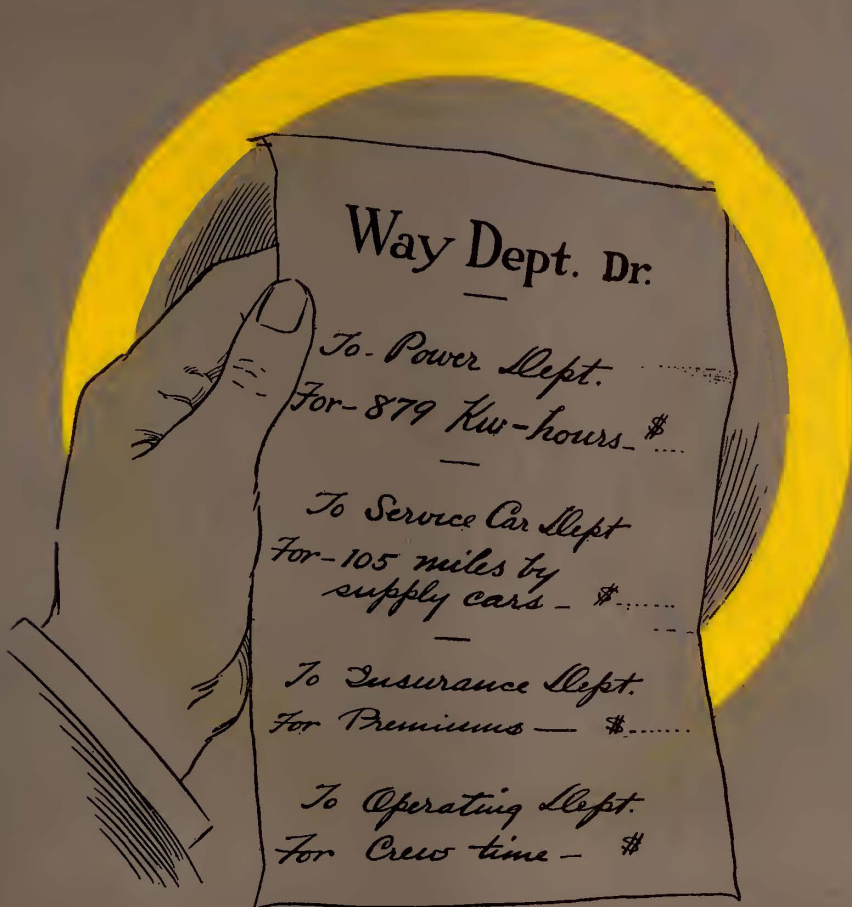 Way Dept. Dr.
To- Power Dept.
For- 879 Kw-hours- $....
To Service Car Dept
For- 105 miles by
supply cars - $......
To Insurance Dept.
For Premiums — $......
To Operating Dept.
For Crew time - $